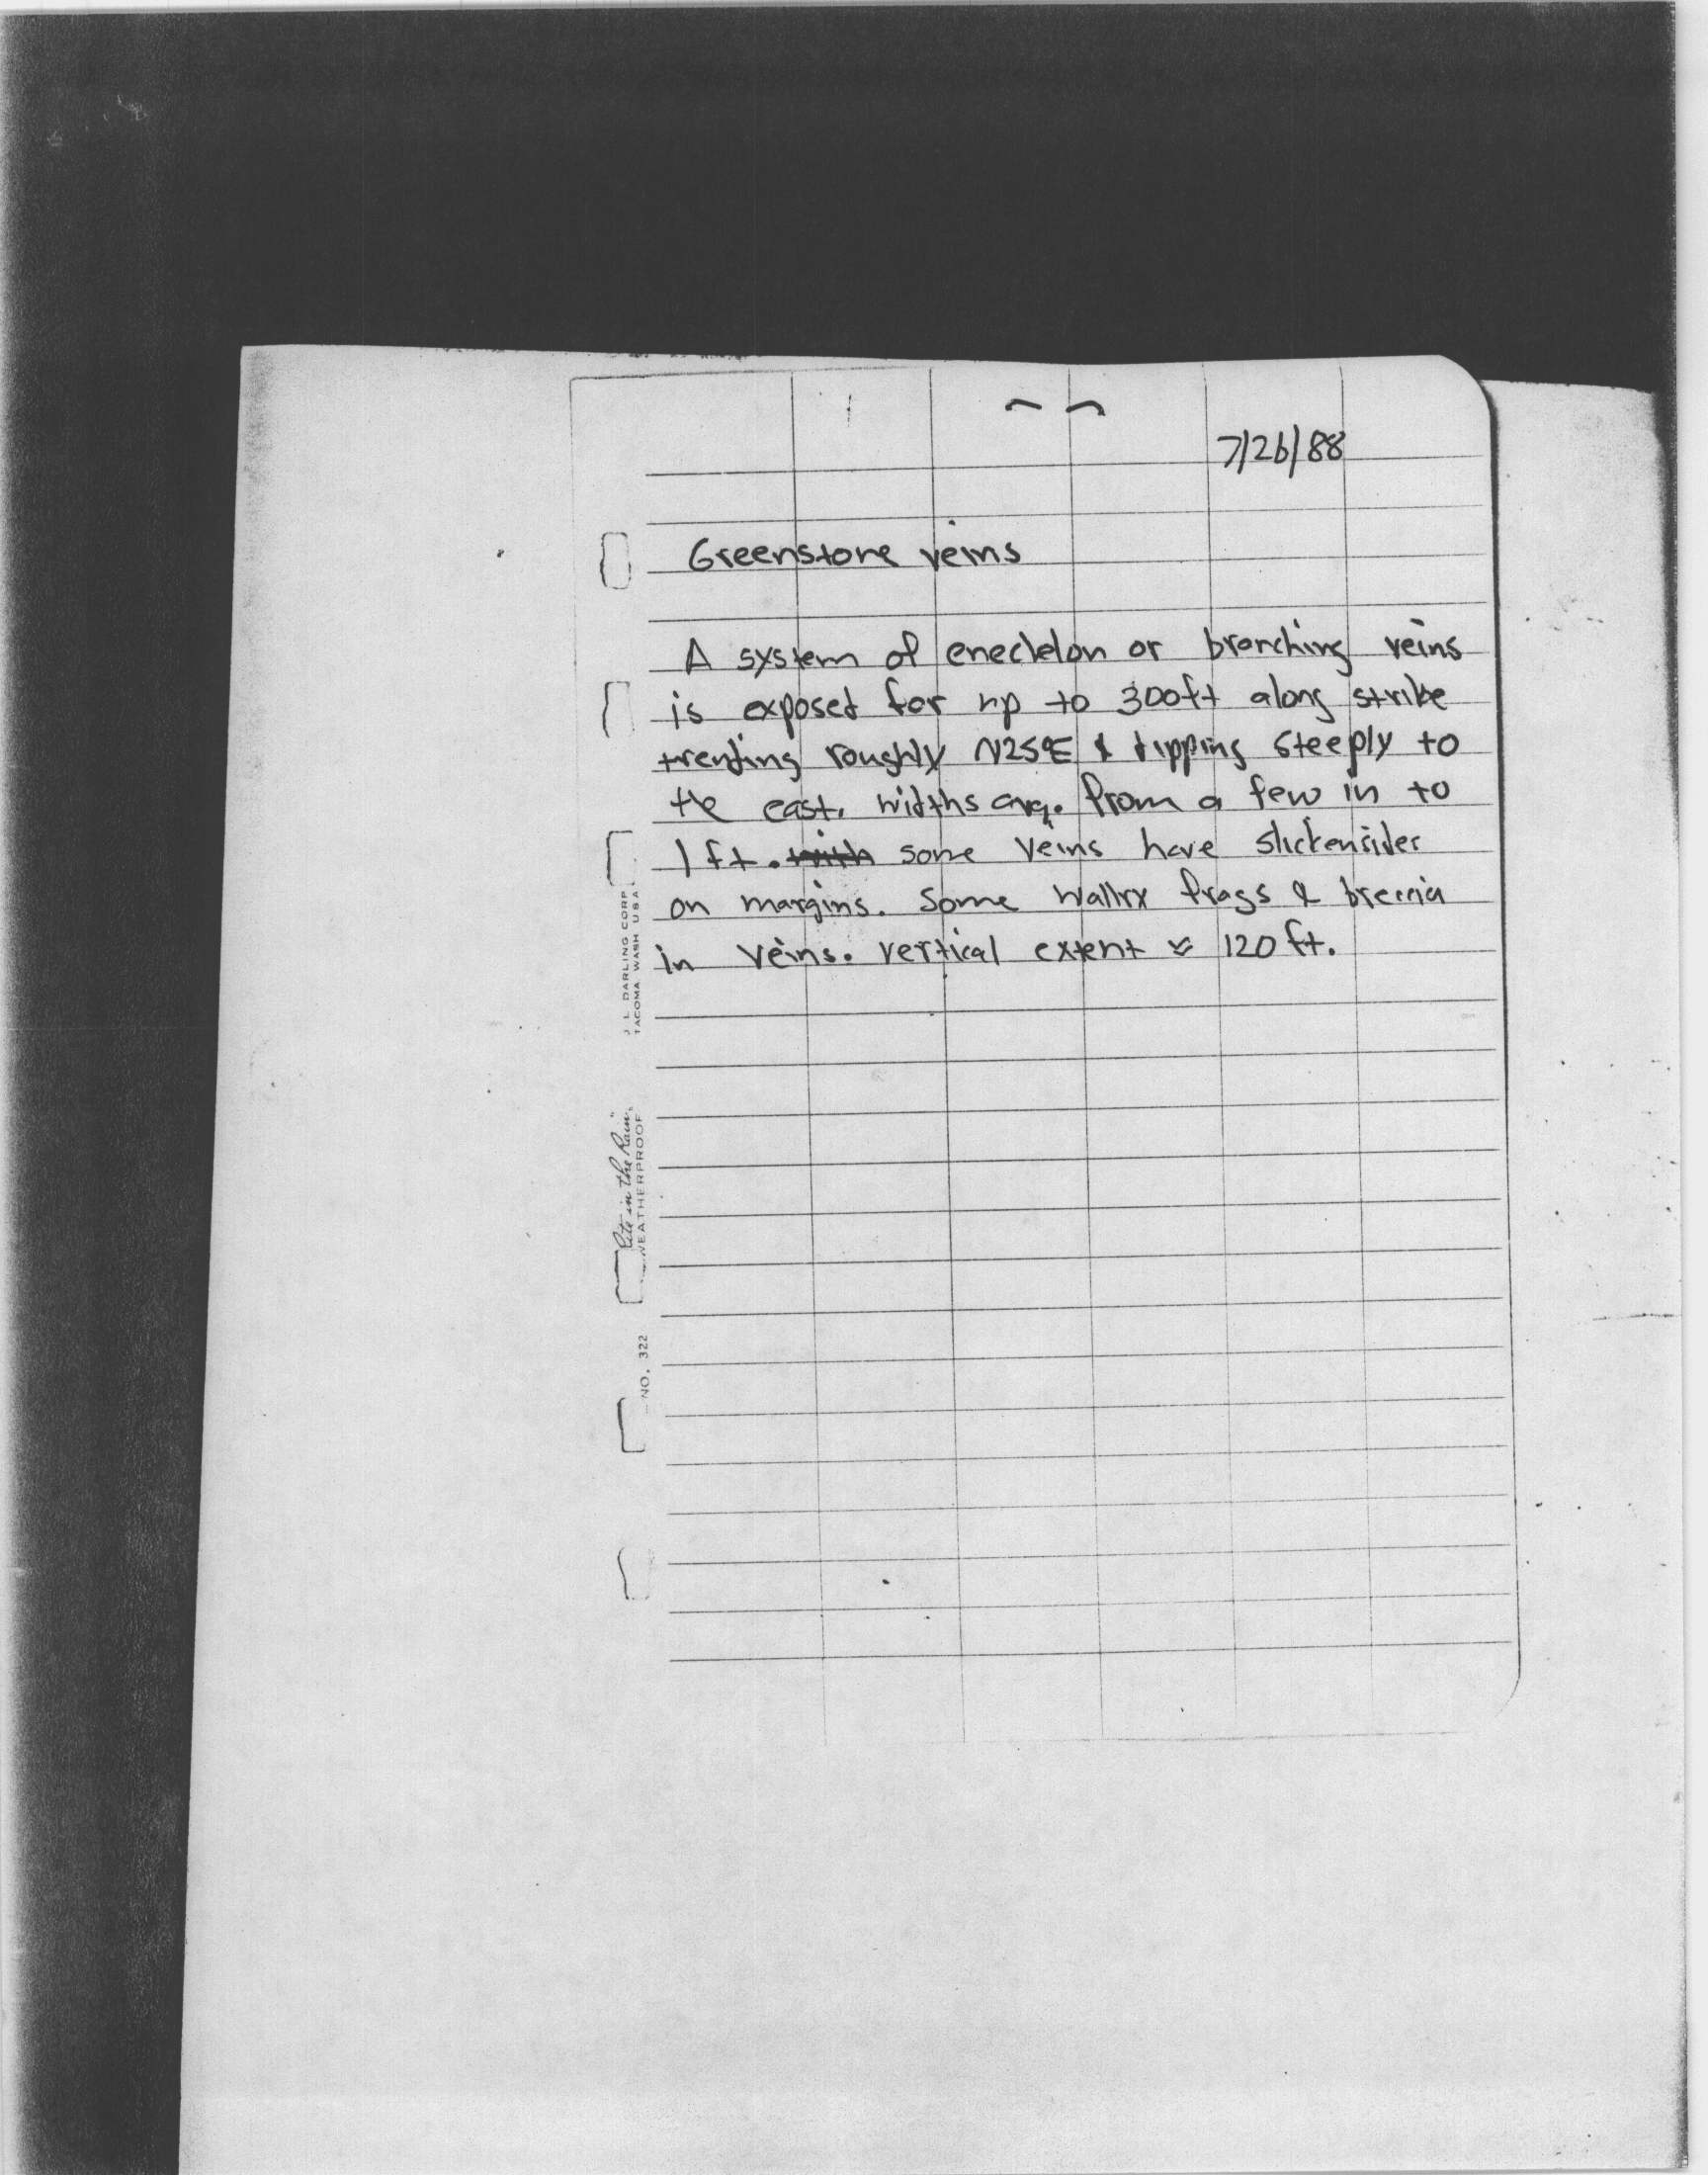 7/26/88
Greenstone veins
A system of enechelon or branching veins
is exposed for up to 300ft along strike
trending roughly N25°E & dipping steeply to
the east. widths avg. from a few in to
1 ft. with some veins have slickensides
on margins. Some wallrx frags & breccia
in veins. vertical extent ≈ 120 ft.
J. L. DARLING CORP.
TACOMA WASH USA
"Rite in the Rain"
WEATHERPROOF
NO. 322